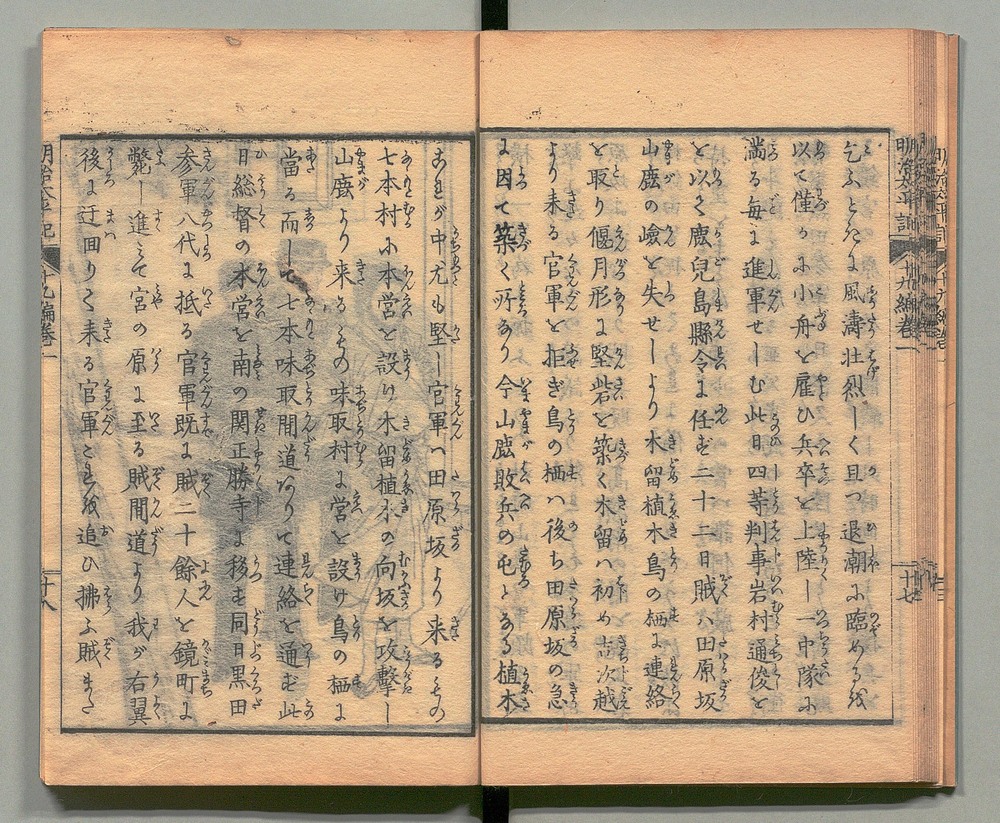 乞ふときに風濤壮烈しく且つ退潮に臨める故
以て僅かに小舟を雇ひ兵卒を上陸し一中隊に
満る毎に進軍せしむ此日四等判事岩村通俊を
を以て鹿児島縣令に任ず二十二日賊ハ田原坂
山鹿の嶮を失せしより木留植木鳥の栖に連絡
を取り偃月形に堅砦を築く木留ハ初め吉次越
より来る官軍を拒ぎ鳥の栖ハ後ち田原坂の急
に因て築く所あり今山鹿敗兵の屯とある植木
明治太平記
十九編巻一
十七
これが中尤も堅し官軍ハ田原坂より来るもの
七本村に本営を設け木留植木の向坂を攻撃し
山鹿より来るもの味取村に営を設け鳥の栖に
當る而して七本味取間道ありて連絡を通ず此
日総督の本営を南の関正勝寺に移す同日黒田
参軍八代に抵る官軍既に賊二十餘人を鏡町に
斃し進んで宮の原に至る賊間道より我が右翼
後に迂回りて来る官軍これを追ひ拂ふ賊また
明治太平記
十九編巻一
十八